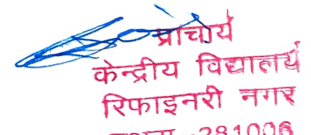 प्राचार्य
केन्द्रीय विद्यालय
रिफाइनरी नगर
-281006